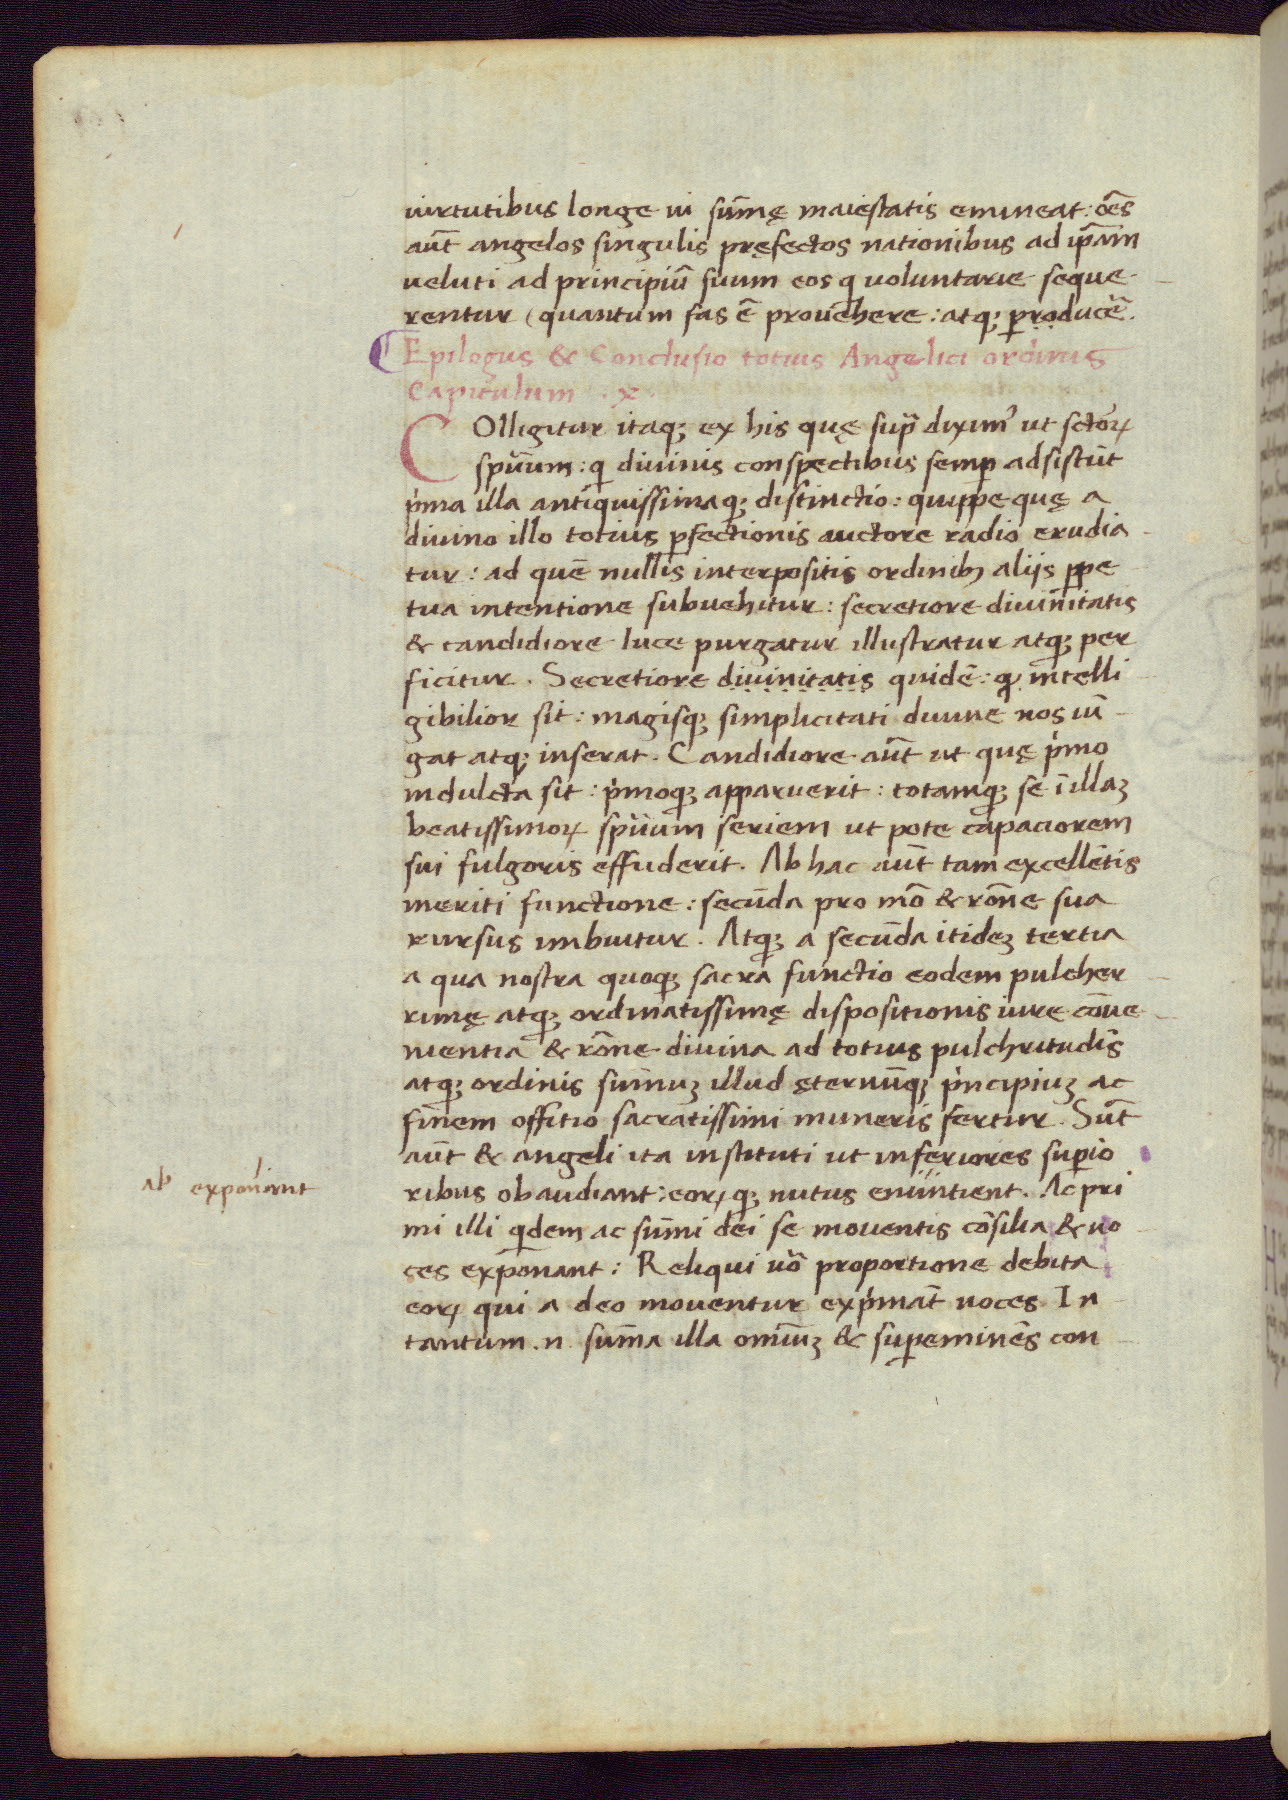 uirtutibus longe ui sūmę maiestatis emineat: oēs
aūt angelos singulis pręfectos nationibus ad ip̄am
ueluti ad principiū suum eos q uoluntarie seque
rentur (quantum fas ē prouehere: atq; producē̄.
Epilogus & Conclusio totius Angelici ordinis
Capitulum .x.
COlligitur itaq; ex his quę sup̄ diximꝰ ut sctōꝝ
sp̄uum: q diuinis conspectibus semꝑ adsistūt
p̍ma illa antiquissimaq; distinctio: quippe quę a
diuino illo totius ꝑfectionis auctore radio erudia
tur: ad quē nullis interpositis ordinibꝫ aliis ꝑpe
tua intentione subuehitur: secretiore diuinitatis
& candidiore luce purgatur illustratur atq; per
ficitur. Secretiore diuinitatis quidē: q intelli
gibilior sit: magisq; simplicitati diuine nos iū
gat atq; inserat. Candidiore aūt ut quę p̍mo
indulcta sit: p̍moq; apparuerit: totamq; se ī illaꝫ
beatissimoꝝ sp̄uum seriem ut pote capaciorem
sui fulgoris effuderit. Ab hac aūt tam excellētis
meriti functione: secūda pro mō & rōne sua
rursus imbuitur. Atq; a secūda itideꝫ tertia
a qua nostra quoq; sacra functio eodem pulcher
rimę atq; ordinatissimę dispositionis iure cōue
nientia & rōne diuina ad totius pulchritudīs
atq; ordinis sūmuꝫ illud ęternūq; p̍ncipiuꝫ ac
finem offitio sacratissimi muneris fertur. Sūt
aūt & angeli ita instituti ut inferiores suꝑio
ribus obaudiant: eoꝝq; nutus enūntient. Ac pri
ab exponant
mi illi qdem ac sūmi dei se mouentis cōsilia & uo
ces exponant: Reliqui uō proportione debita
eoꝝ qui a deo mouentur exp̍māt uoces. In
tantum .n. sūma illa omīuꝫ & suꝑeminēs con